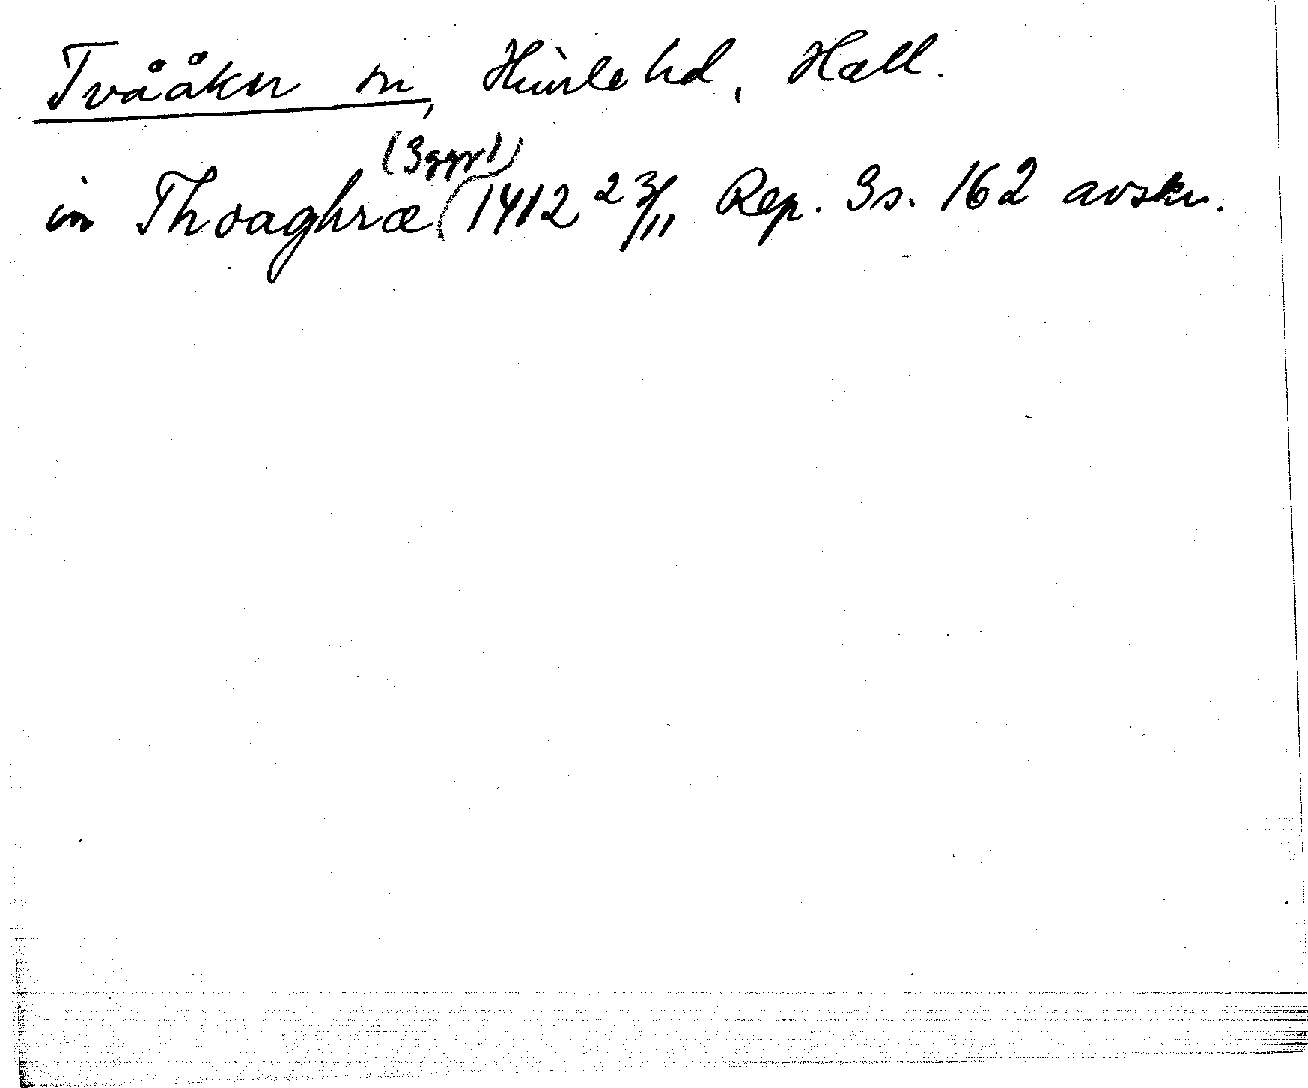 Tvååker sn, Himle hd, Hall.
(3 ggr!)
in Thoaghræ (1412 23/11 Rep. 3 s. 162 avskr.